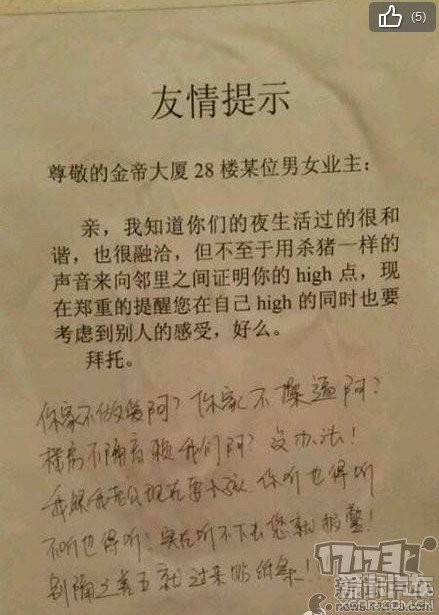 (5)
友情提示
尊敬的金帝大厦28楼某位男女业主：
亲，我知道你们的夜生活过的很和
谐，也很融洽，但不至于用杀猪一样的
声音来向邻里之间证明你的high点，现
在郑重的提醒您在自己high的同时也要
考虑到别人的感受，好么。
拜托。
你家不做爱阿？你家不操逼阿？
楼房不隔音赖我们阿？没办法！
我跟我老公现在要小孩.你听也得听
不听也得听！实在听不下去您就报警！
别隔三差五就过来贴纸条！
17173